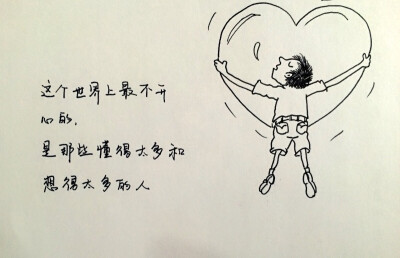 这个世界上最不开
心的,
是那些懂得太多和
想得太多的人